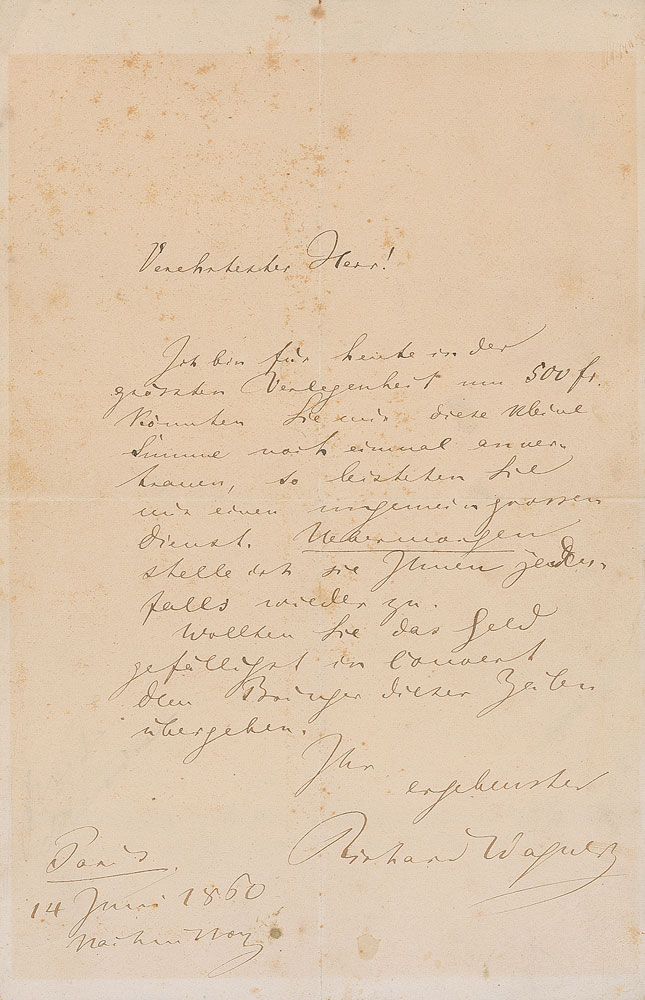 Verehrtester Herr!
Ich bin für heute in der
grössten Verlegenheit um 500 fr.
Könnten Sie mir diese kleine
Summe noch einmal anver-
trauen, so leisteten Sie
mir einen ungemein grossen
Dienst. Uebermorgen
stelle ich sie Ihnen jeden-
falls wieder zu.
Wollten Sie das Geld
gefälligst in Couvert
dem Bringer dieser Zeilen
übergeben.
Ihr
ergebenster
Richard Wagner
Paris
14 Juni 1860